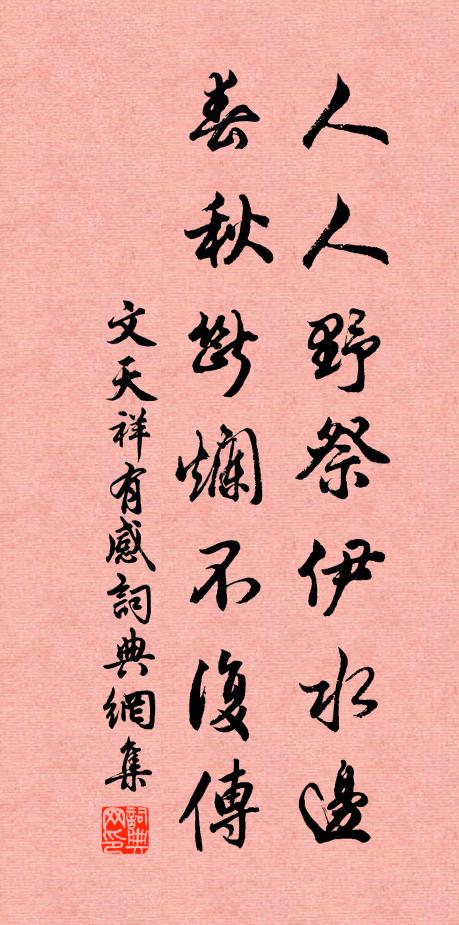 人人野祭伊水邊
春秋斷爛不復傳
文天祥有感詞典網集
詞典网印